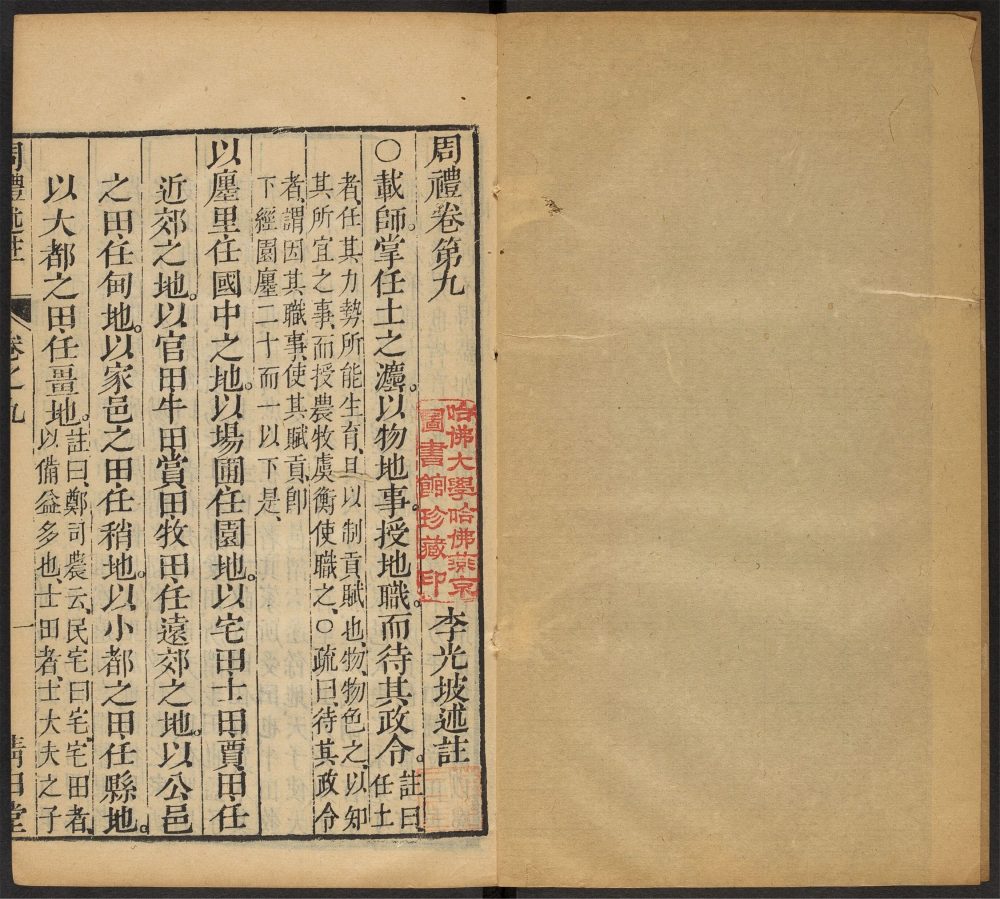 周禮卷第九 李光坡述註
哈佛大學哈佛燕京
圖書館珍藏印
〇載師掌任土之灋。以物地事。授地職。而待其政令。
註曰、
任土
者、任其力勢所能生育、且以制貢賦也、物、物色之、以知
其所宜之事、而授農牧虞衡使職之、〇疏曰、待其政令
者、謂因其職事、使其賦貢、即
下經園廛二十而一以下是、
以廛里任國中之地。以場圃任園地。以宅田、士田、賈田、任
近郊之地。以官田、牛田、賞田、牧田、任遠郊之地。以公邑
之田、任甸地。以家邑之田、任稍地。以小都之田、任縣地。
以大都之田、任畺地。
註曰、鄭司農云、民宅曰宅、宅田者、
以備益多也、士田者、士大夫之子
周禮述註 卷之九 一 堂